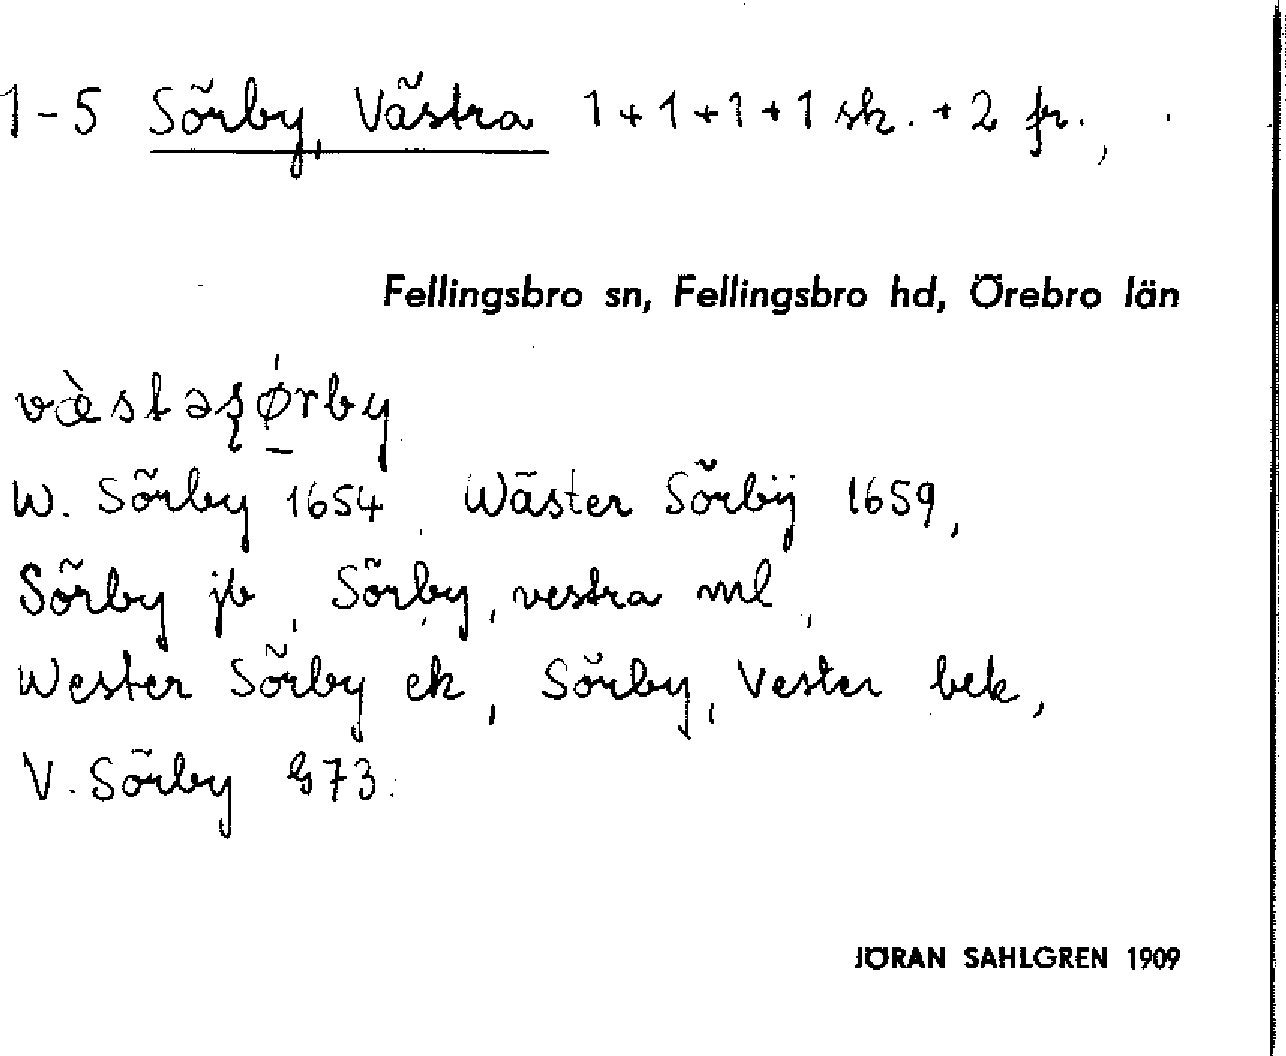 1-5 Sörby, Västra 1+1+1+1 sk. + 2 fr.,
Fellingsbro sn, Fellingsbro hd, Örebro län
W. Sörby 1654, Wäster Sörbÿ 1659,
Sörby jb, Sörby, vestra ml,
Wester Sörby ek, Sörby, Vester bek,
V. Sörby G73.
JÖRAN SAHLGREN 1909